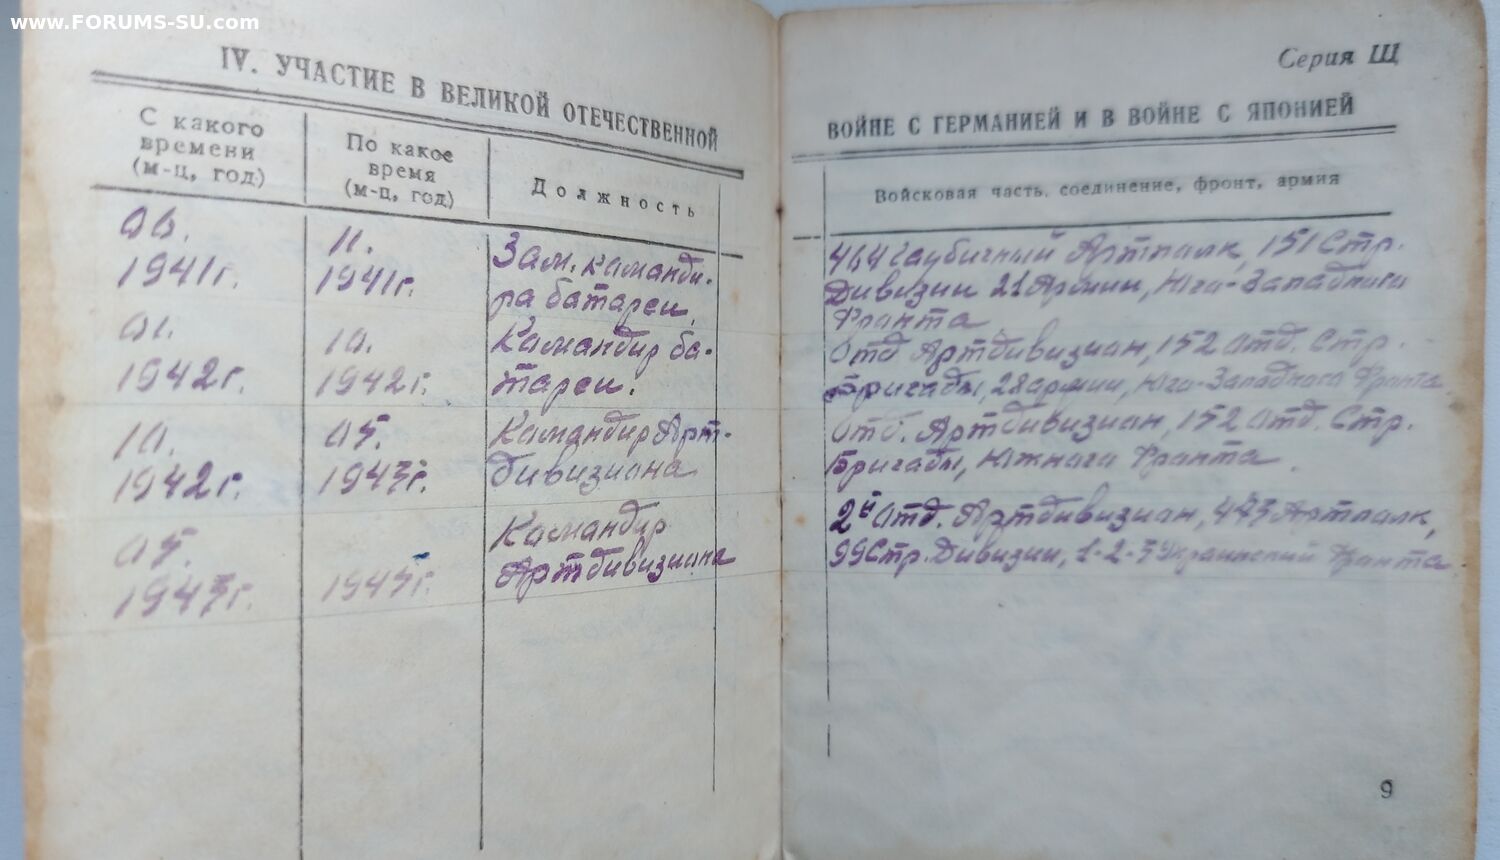 www.FORUMS-SU.com
IV. УЧАСТИЕ В ВЕЛИКОЙ ОТЕЧЕСТВЕННОЙ
С какого
времени
(м-ц, год)
По какое
время
(м-ц, год)
Должность
06.
1941г.
11.
1941г.
Зам. команди-
ра батареи.
01.
1942г.
10.
1942г.
Командир ба-
тареи.
10.
1942г.
05.
1943г.
Командир Арт-
дивизиона
05.
1943г.
1945г.
Командир
Артдивизиона
Серия Щ
ВОЙНЕ С ГЕРМАНИЕЙ И В ВОЙНЕ С ЯПОНИЕЙ
Войсковая часть, соединение, фронт, армия
464 гаубичный Артполк, 151 Стр.
Дивизии 21 Армии, Юго-Западного
Фронта
Отд Артдивизион, 152 отд. Стр.
Бригады, 28 армии, Юго-Западного Фронта
Отд. Артдивизион, 152 отд. Стр.
Бригады, Южного Фронта.
2й отд. Артдивизион, 473 Артполк,
99 Стр. Дивизии, 1-2-3 Украинский Фронта
9